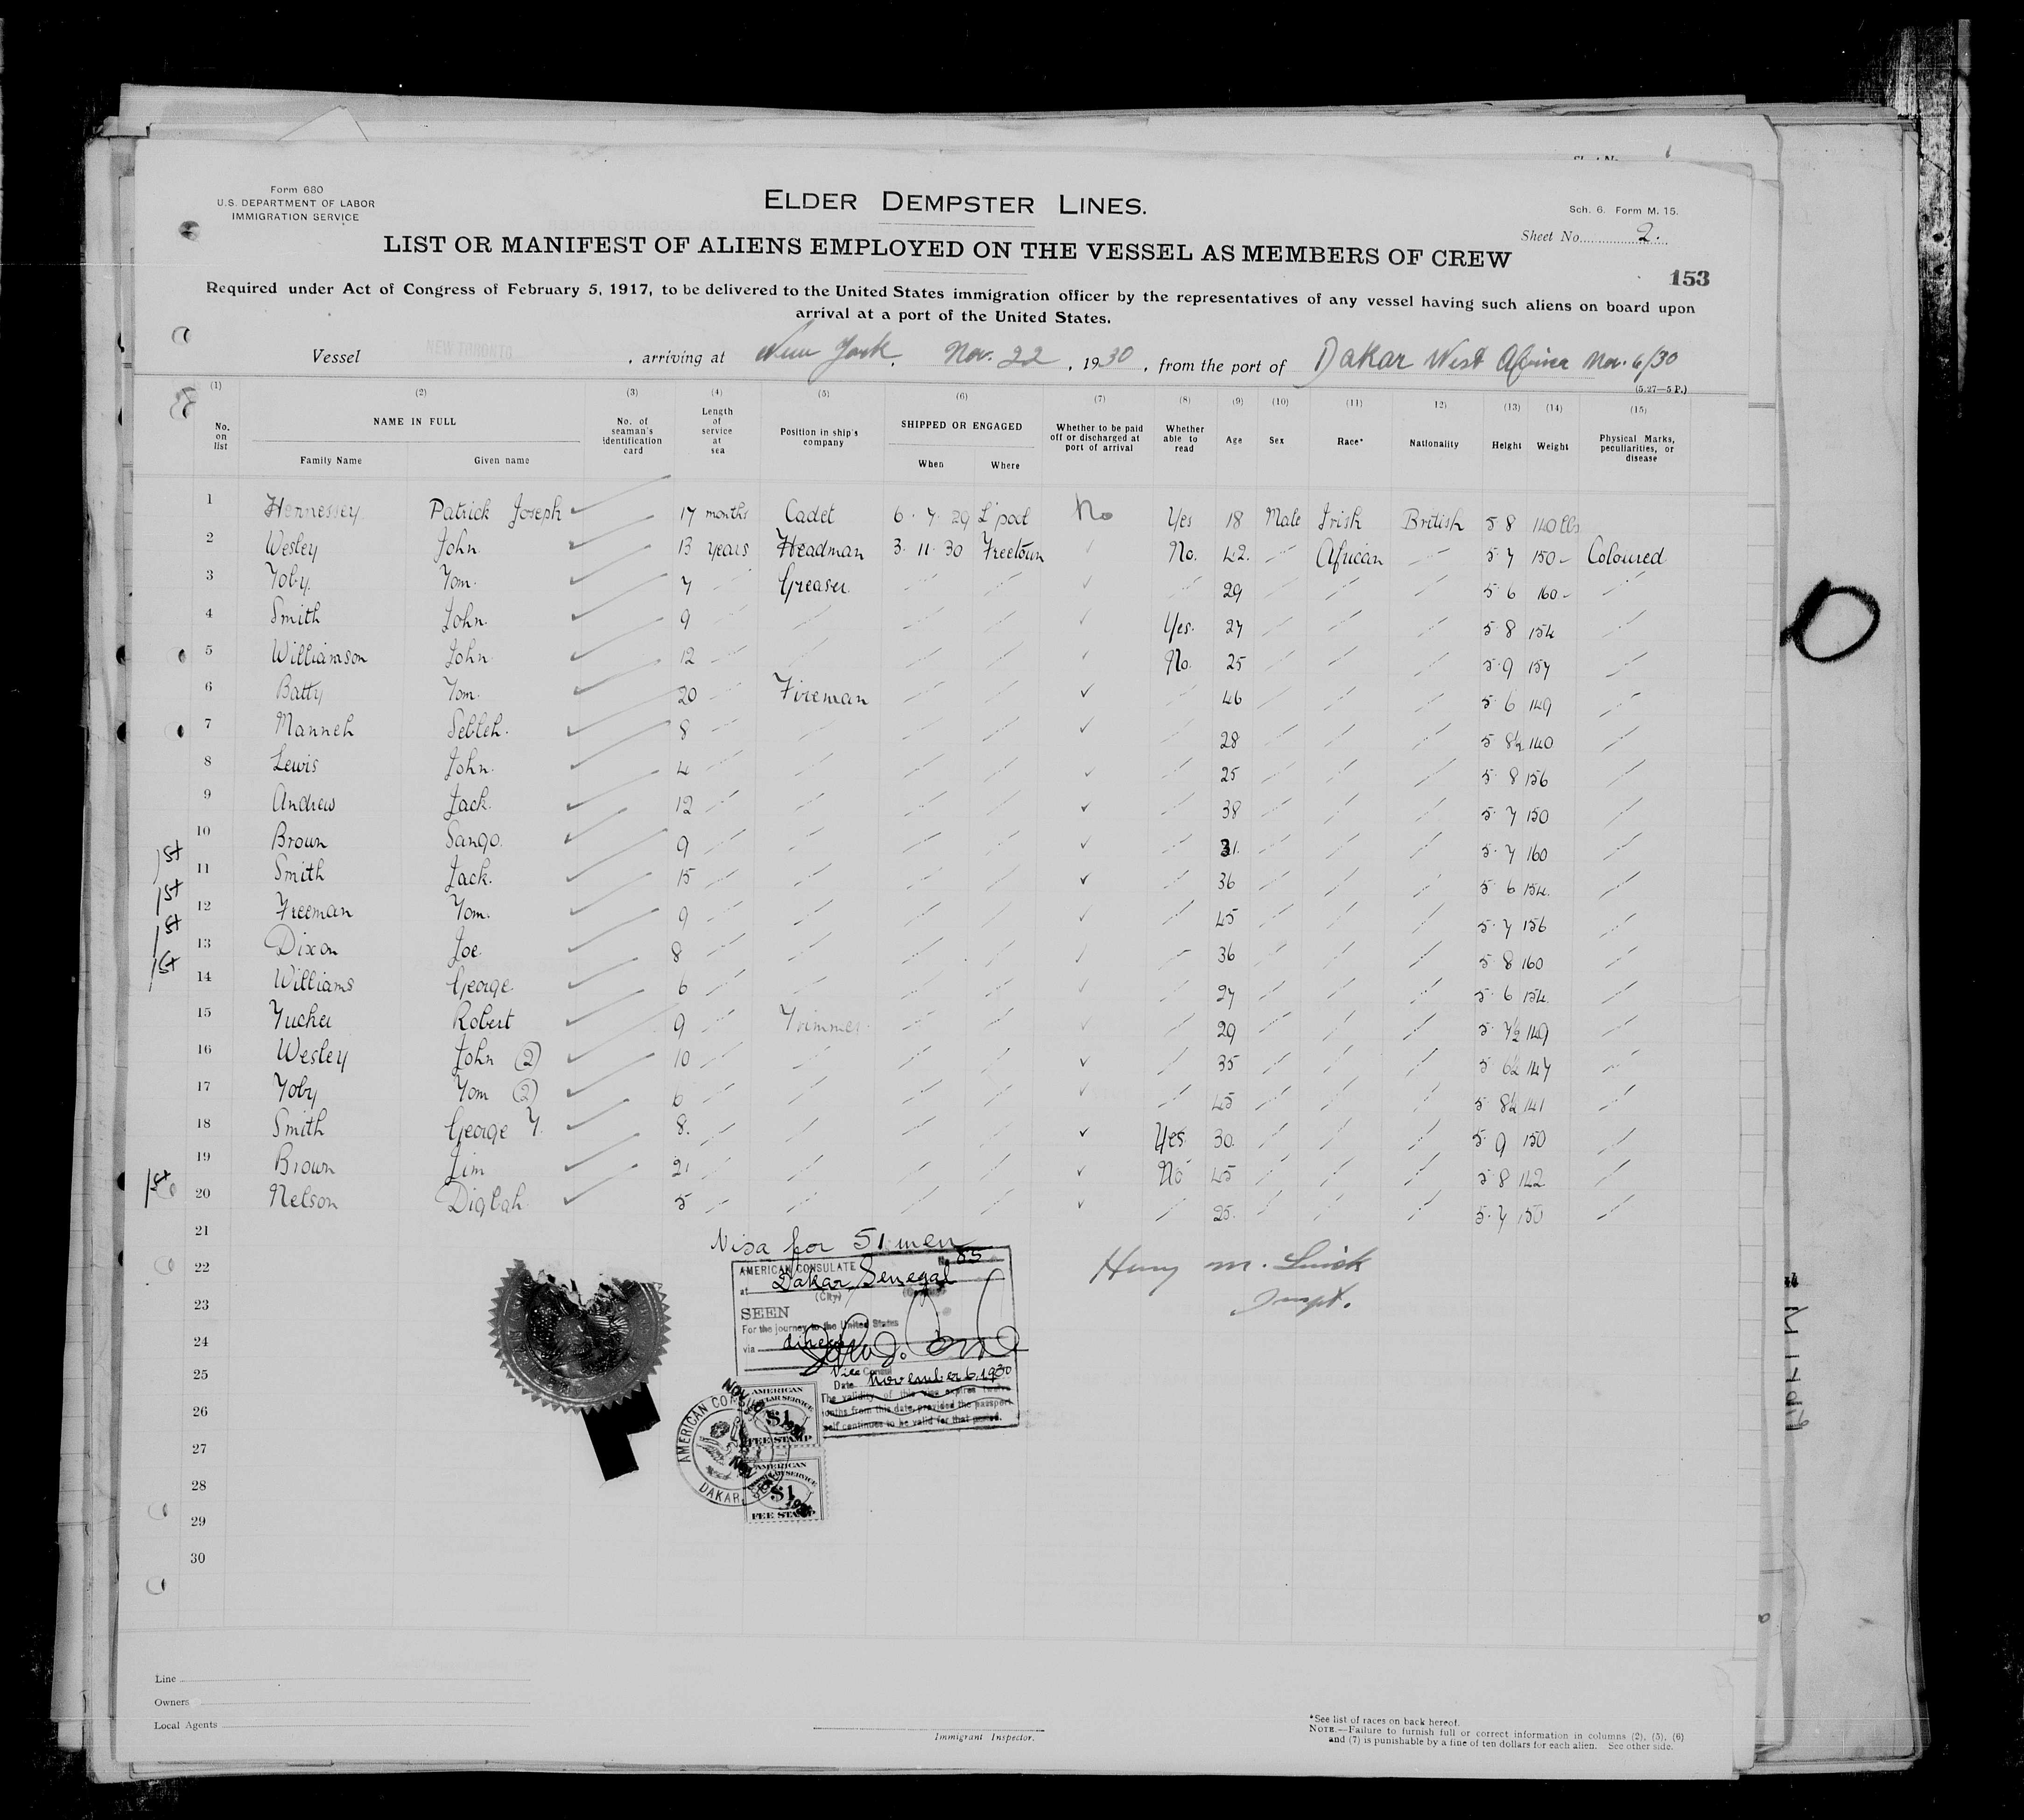 Form 680
U.S. DEPARTMENT OF LABOR
IMMIGRATION SERVICE
ELDER DEMPSTER LINES.
Sch. 6. Form M. 15.
Sheet No. 2.
LIST OR MANIFEST OF ALIENS EMPLOYED ON THE VESSEL AS MEMBERS OF CREW
153
Required under Act of Congress of February 5, 1917, to be delivered to the United States immigration officer by the representatives of any vessel having such aliens on board upon
arrival at a port of the United States.
Vessel NEW TORONTO, arriving at New York, Nov. 22, 1930, from the port of Dakar West Africa Nov. 6/30
(5.27—5 P.)
(1) (2) (3) (4) (5) (6) (7) (8) (9) (10) (11) 12) (13) (14) (15)
No. on list NAME IN FULL Family Name Given name No. of seaman's identification card Length of service at sea Position in ship's company SHIPPED OR ENGAGED When Where Whether to be paid off or discharged at port of arrival Whether able to read Age Sex Race* Nationality Height Weight Physical Marks, peculiarities, or disease
1 Hennessey Patrick Joseph 17 months Cadet 6. 7. 29 L'pool No Yes 18 Male Irish British 5 8 140 lbs
2 Wesley John. 13 years Headman 3. 11. 30 Freetown No. 42. African 5 7 150 Coloured
3 Toby. Tom. 7 Greaser. 29 5 6 160
4 Smith John. 9 Yes. 27 5 8 154
5 Williamson John 12 No. 25 5 9 157
6 Batty Tom. 20 Fireman 46 5 6 149
7 Manneh Sebleh. 8 28 5 8½ 140
8 Lewis John. 4 25 5 8 156
9 Andrew Jack. 12 38 5 7 150
10 Brown Sango. 9 31. 5 7 160
1st
11 Smith Jack. 15 36 5 6 154.
1st
12 Freeman Tom. 9 45 5 7 156
1st
13 Dixon Joe. 8 36 5 8 160
1st
14 Williams George. 6 27 5 6 154.
15 Tucker Robert 9 Trimmer. 29 5 7½ 149
16 Wesley John (2) 10 35 5 6½ 147
17 Toby Tom (2) 6 45 5 8½ 141
18 Smith George T. 8. Yes 30. 5 9 150
19 Brown Jim 21 No 45 5 8 142
1st
20 Nelson Digbah. 5 25. 5 7 150
21
22
23
24
25
26
27
28
29
30
Visa for 51 men
AMERICAN CONSULATE No. 85
at Dakar, Senegal
(City)
SEEN
For the journey to the United States
via direct
Vice Consul
Date November 6, 1930
The validity of this visa expires twelve
months from this date, provided the passport
self continues to be valid for that period.
Henry M.
Inspt.
AMERICAN CONSULAR SERVICE
$1
FEE STAMP
AMERICAN CONSULAR SERVICE
$1
FEE STAMP
DAKAR
Line
Owners
Local Agents
Immigrant Inspector.
*See list of races on back hereof.
NOTE.—Failure to furnish full or correct information in columns (2), (5), (6)
and (7) is punishable by a fine of ten dollars for each alien. See other side.